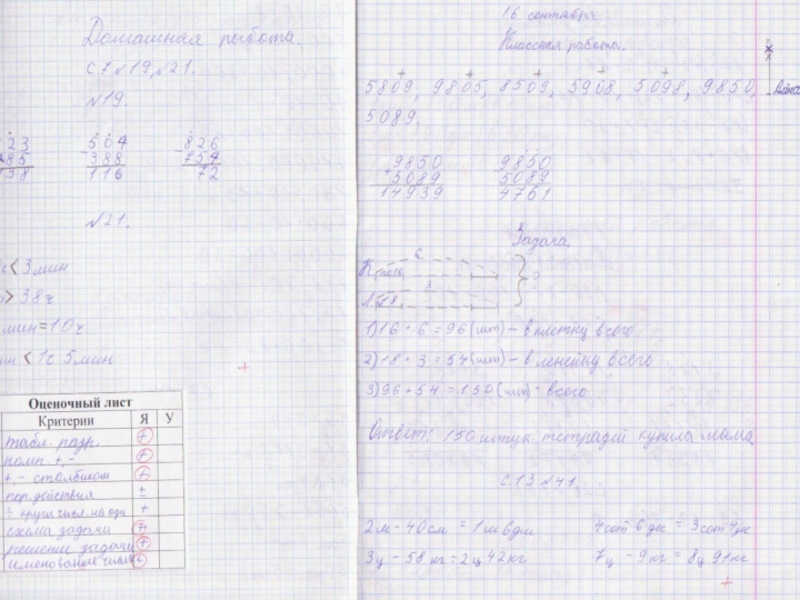 Домашная работа.
с.7 №19, №21.
№19.
23 - 504 - 826
85 388 754
138 116 72
№21.
< 3 мин
> 38 ч
мин = 10 ч
< 1ч 5 мин
Оценочный лист
Критерии Я У
табл. разр. +
комп. +,- +
+,- столбиком +
пор. действия ±
: кругл. числ. на одн +
схема задачи +
решение задачи +
именование числа
16 сентября.
Классная работа.
5809, 9805, 8509, 5908, 5098, 9850,
5089.
9850 9850
+ 5089 5089
14939 4761
Задача.
К. 6
Л. 18 3 ?
1) 16 · 6 = 96 (шт) - в клетку всего
2) 18 · 3 = 54 (шт) - в линейку всего
3) 96 + 54 = 150 (шт) - всего
Ответ: 150 штук тетрадей купила мама
с.13 №41.
2м - 40см = 1м 6дм 4сот 6дес = 3сот 4дес
3ц - 58 кг = 2ц 42 кг 7ц - 9кг = 8ц 91кг